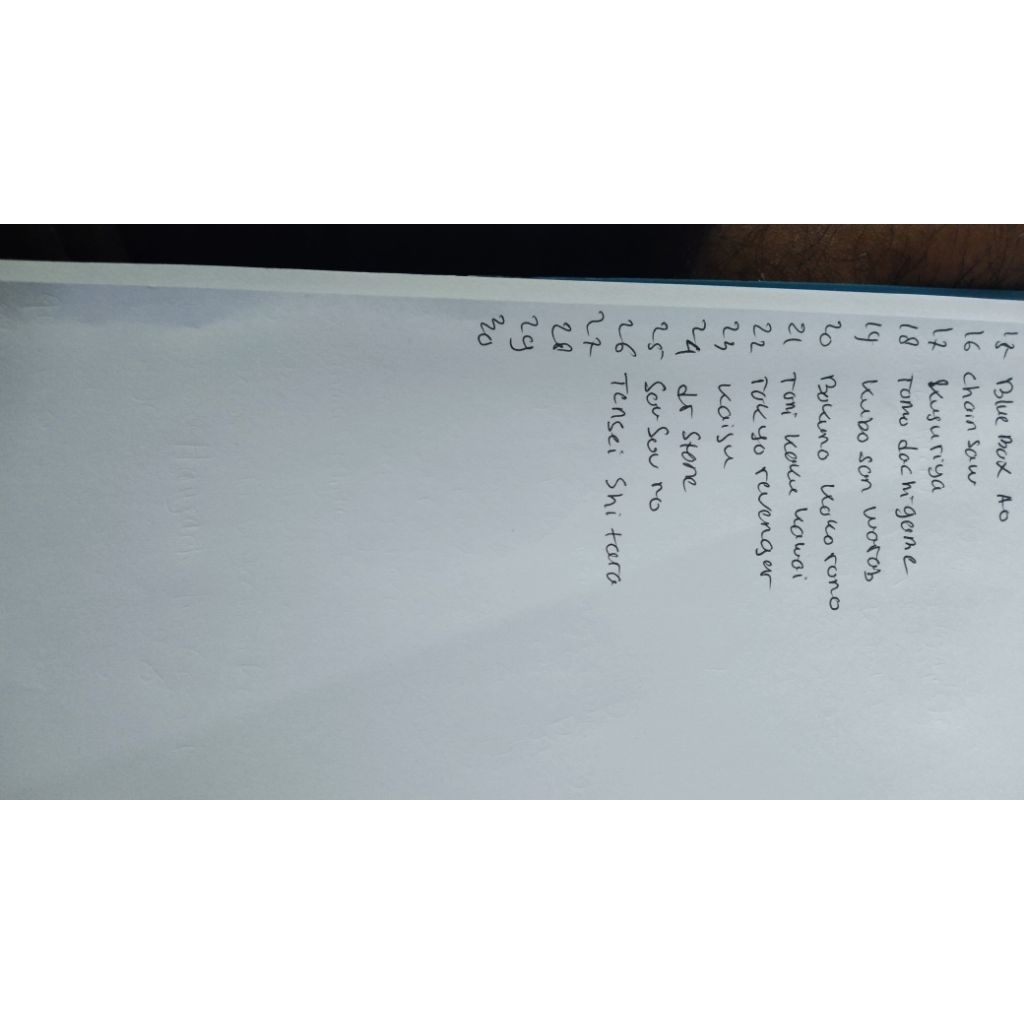 15 Blue Box Ao
16 chain saw
17 kusuriya
18 Tomo dachi-game
19 kubo san waras
20 Bokuno kokorono
21 Toni kaku kawai
22 Tokyo revenger
23 kaiju
24 dr stone
25 Sou Sou no
26 Tensei Shi tara
27
28
29
30